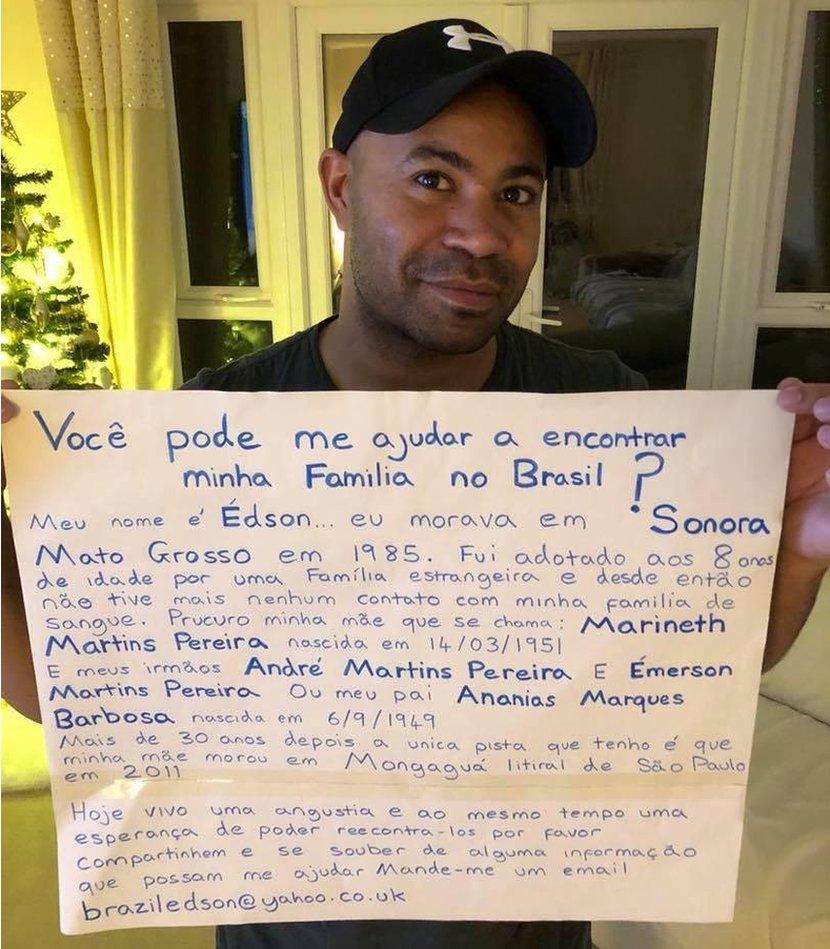 Você pode me ajudar a encontrar
minha Familia no Brasil ?
Meu nome e' Édson... eu morava em Sonora
Mato Grosso em 1985. Fui adotado aos 8 anos
de idade por uma Família estrangeira e desde então
não tive mais nenhum contato com minha familia de
sangue. Prucuro minha mãe que se chama: Marineth
Martins Pereira nascida em 14/03/1951
E meus irmãos André Martins Pereira E Émerson
Martins Pereira Ou meu pai Ananias Marques
Barbosa nascida em 6/9/1949
Mais de 30 anos depois a unica pista que tenho é que
minha mãe morou em Mongaguá litiral de São Paulo
em 2011
Hoje vivo uma angustia e ao mesmo tempo uma
esperança de poder reecontra-los por favor
compartinhem e se souber de alguma informação
que possam me ajudar Mande-me um email
braziledson@yahoo.co.uk